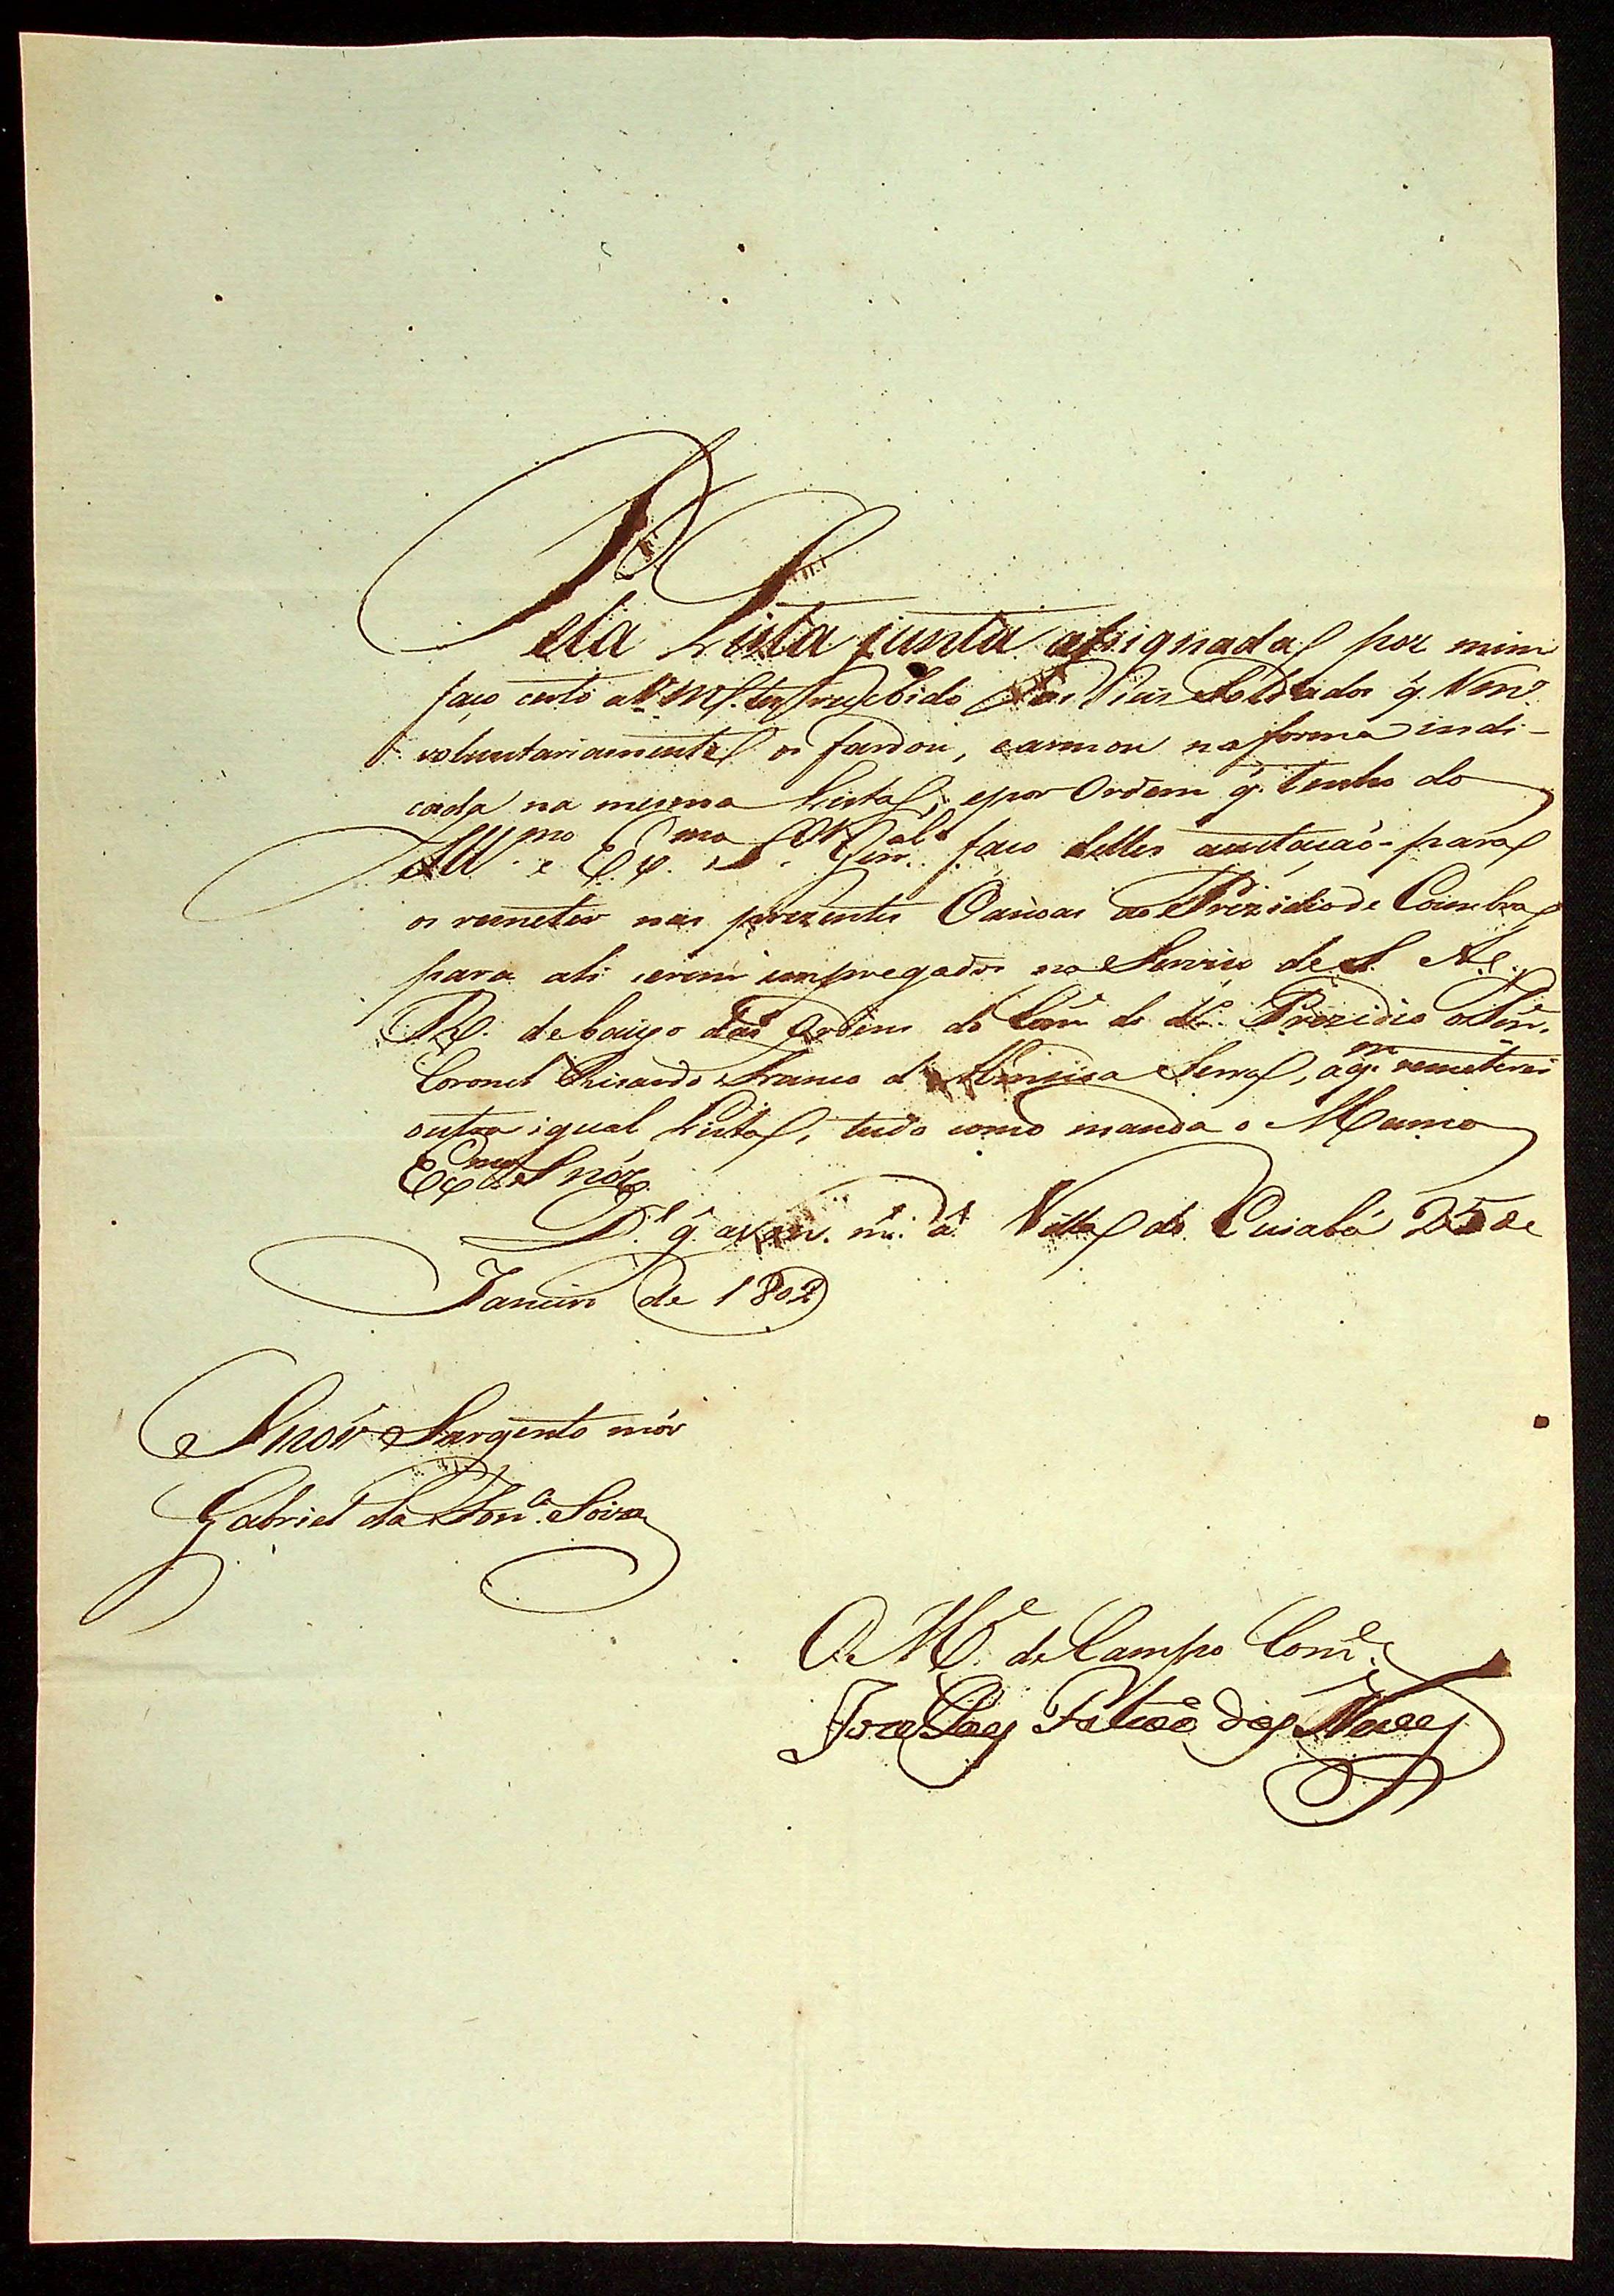 Pela Lista junta assignada por mim
faço certo a Vm.ce ter recebido os Soldados q. Vm.ce
voluntariamente os fardou, e armou na forma indi-
cada na mesma Lista; e por Ordem q. tenho do
Ill.mo e Ex.mo S.r Gen.al faço delles aceitação para
os remeter nas prezentes Canoas ao Prezidio de Coimbra
para ali serem empregados no Serviço de S. A.
R. debaixo das Ordens do Com.e do d.o Prezidio o Ten.e
Coronel Ricardo Franco d'Almeida Serra, a q.m remeterei
outra igual Lista, tudo como manda o Mesmo
Ex.mo Snór.
D.s g. a Vm. m. a. Villa do Cuiabá 25 de
Janeiro de 1802
Snór Sargento mór
Gabriel da Fon.ca Soiza
O M.e de Campo Com.e
Joze Paes Falcaõ das Neves